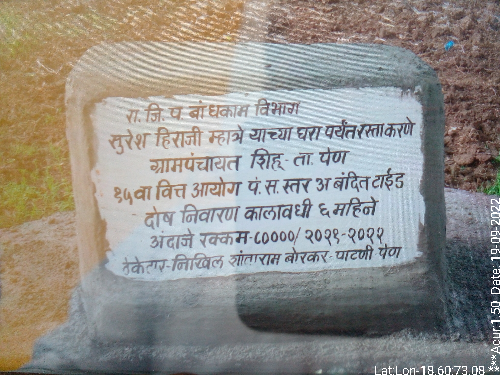 रा. जि. प बांधकाम विभाग
सुरेश हिराजी म्हात्रे याच्या घरा पर्यंत रस्ता करणे
ग्रामपंचायत शिहू- ता. पेण
१५वा वित्त आयोग पं. स. स्तर अ बंदित टाईड
दोष निवारण कालावधी ६ महिने
अंदाजे रक्कम-८००००/ २०२१-२०२२
ठेकेदार-निखिल शांताराम बोरकर-पाटणी पेण
Lat:Lon-18.60:73.08 ***Acur:1.50 Date: 19-09-2022